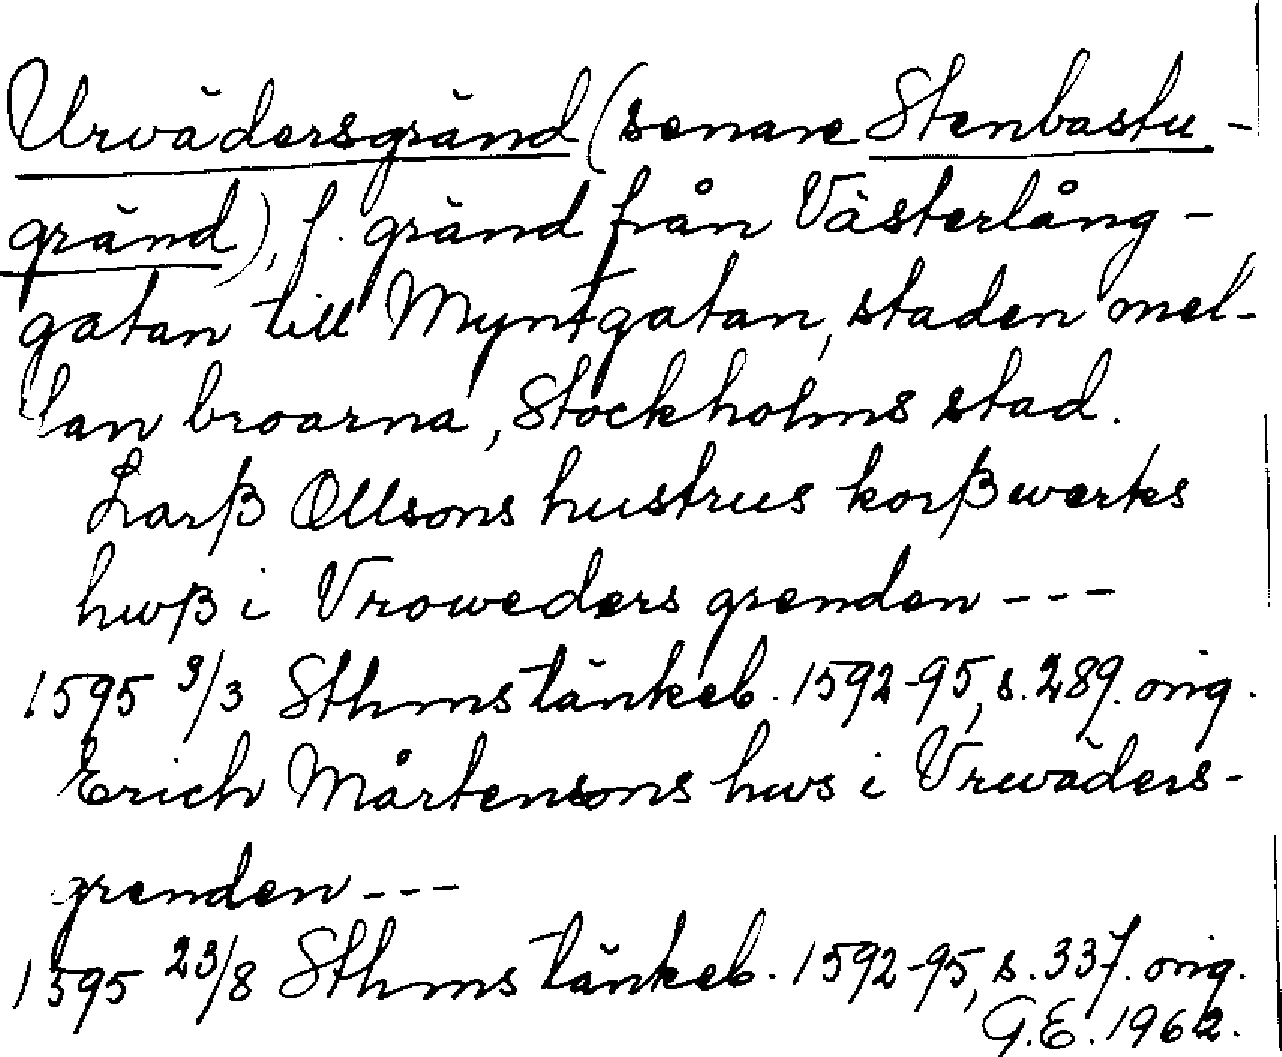 Urvädersgränd (senare Stenbastu-
gränd), f. gränd från Västerlång-
gatan till Myntgatan, staden mel-
lan broarna, Stockholms stad.
Larß Ollsons hustrus korßwerks
hwß i Vroweders grenden ---
1595 3/3 Sthms tänkeb. 1592-95, s. 289. orig.
Erich Mårtensons hws i Vrwäders-
grenden ---
1595 23/8 Sthms tänkeb. 1592-95, s. 337. orig.
G.E. 1962.